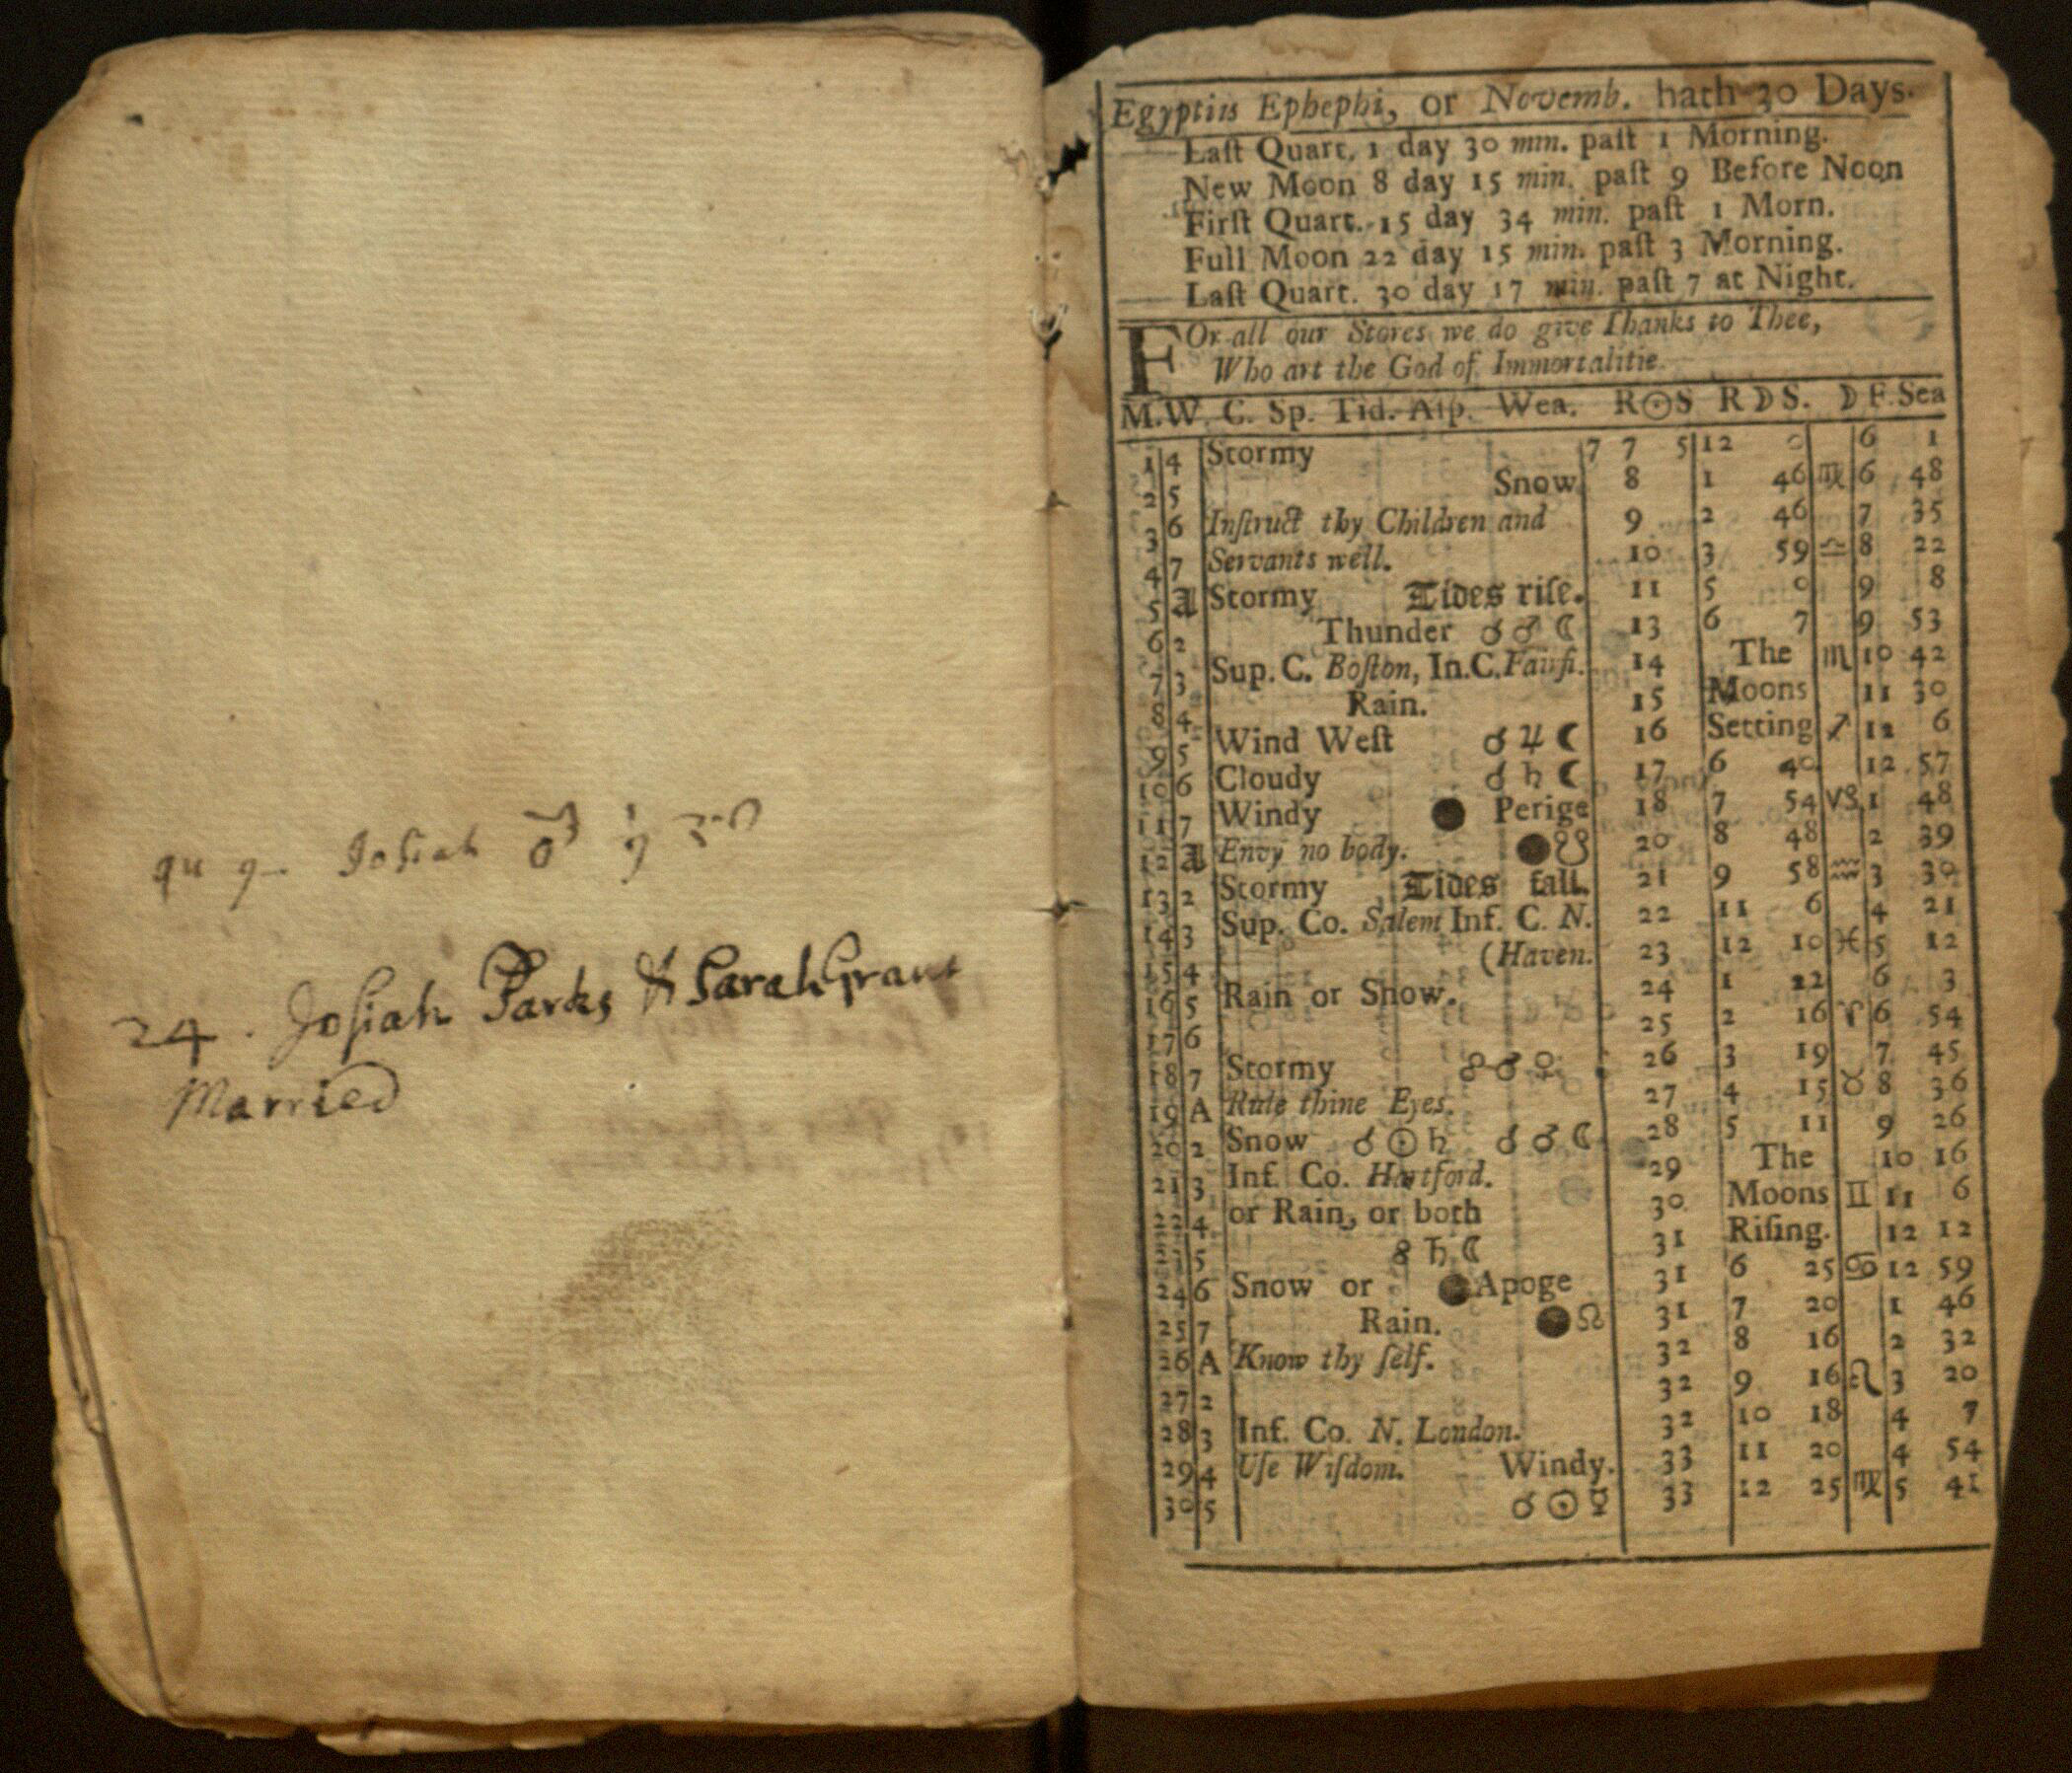 Josiah
24. Josiah Parks & Sarah Grant
Married
Egyptiis Ephephi, or Novemb. hath 30 Days.
Laſt Quart. 1 day 30 min. paſt 1 Morning.
New Moon 8 day 15 min. paſt 9 Before Noon
Firſt Quart. 15 day 34 min. paſt 1 Morn.
Full Moon 22 day 15 min. paſt 3 Morning.
Laſt Quart. 30 day 17 min. paſt 7 at Night.
FOr all our Stores we do give Thanks to Thee,
Who art the God of Immortalitie.
M. W. C. Sp. Tid. Aſp. Wea. R☉S R☽S. ☽ F. Sea
1 4 Stormy 7 7 5 12 0 6 1
2 5 Snow 8 1 46 ♍ 6 48
3 6 Inſtruct thy Children and 9 2 46 7 35
4 7 Servants well. 10 3 59 ♎ 8 22
5 A Stormy Tides riſe. 11 5 0 9 8
6 2 Thunder ☌ ♂ ☾ 13 6 7 9 53
7 3 Sup. C. Boſton, In. C. Fairfi. 14 The ♏ 10 42
8 4 Rain. 15 Moons 11 30
9 5 Wind Weſt ☌ ♃ ☾ 16 Setting ♐ 12 6
10 6 Cloudy ☌ ♄ ☾ 17 6 40 12 57
11 7 Windy ● Perige 18 7 54 ♑ 1 48
12 A Envy no body. ● ☋ 20 8 48 2 39
13 2 Stormy Tides fall. 21 9 58 ♒ 3 30
14 3 Sup. Co. Salem Inf. C. N. 22 11 6 4 21
15 4 (Haven. 23 12 10 ♓ 5 12
16 5 Rain or Snow. 24 1 22 6 3
17 6 25 2 16 ♈ 6 54
18 7 Stormy ☍ ♂ ♀ 26 3 19 7 45
19 A Rule thine Eyes. 27 4 15 ♉ 8 36
20 2 Snow ☌ ☉ ♄ ☌ ♂ ☾ 28 5 11 9 26
21 3 Inf. Co. Hartford. 29 The 10 16
22 4 or Rain, or both 30 Moons ♊ 11 6
23 5 ☍ ♄ ☾ 31 Riſing. 12 12
24 6 Snow or ● Apoge 31 6 25 ♋ 12 59
25 7 Rain. ● ☊ 31 7 20 1 46
26 A Know thy ſelf. 32 8 16 2 32
27 2 32 9 16 ♌ 3 20
28 3 Inf. Co. N. London. 32 10 18 4 7
29 4 Uſe Wiſdom. Windy. 33 11 20 4 54
30 5 ☌ ☉ ☿ 33 12 25 ♍ 5 41